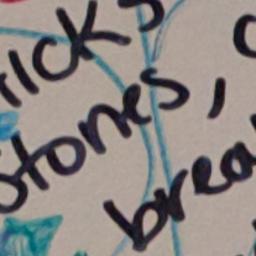 icks
stones,
brea